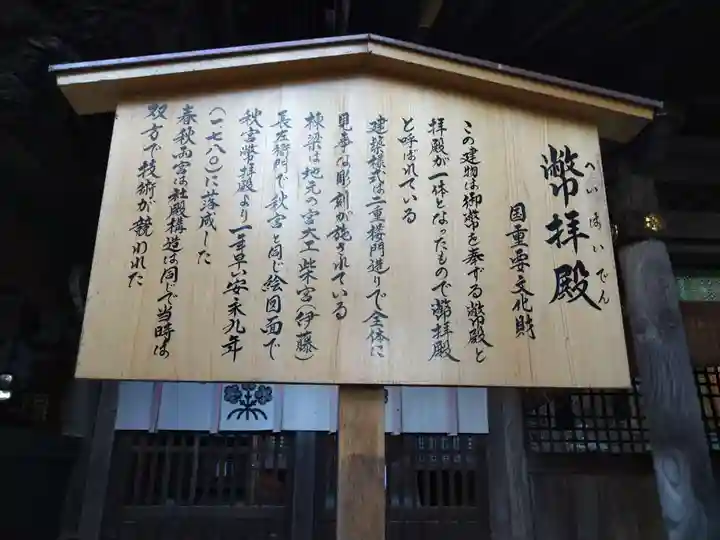 幣拝殿
へいはいでん
国重要文化財
この建物は御幣を奉げる幣殿と
拝殿が一体となったもので幣拝殿
と呼ばれている
建築様式は二重楼門造りで全体に
見事な彫刻が施されている
棟梁は地元の宮大工柴宮(伊藤)
長左衛門で秋宮と同じ絵図面で
秋宮幣拝殿より一年早い安永九年
(一七八〇)に落成した
春秋両宮は社殿構造は同じで当時は
双方で技術が競われた